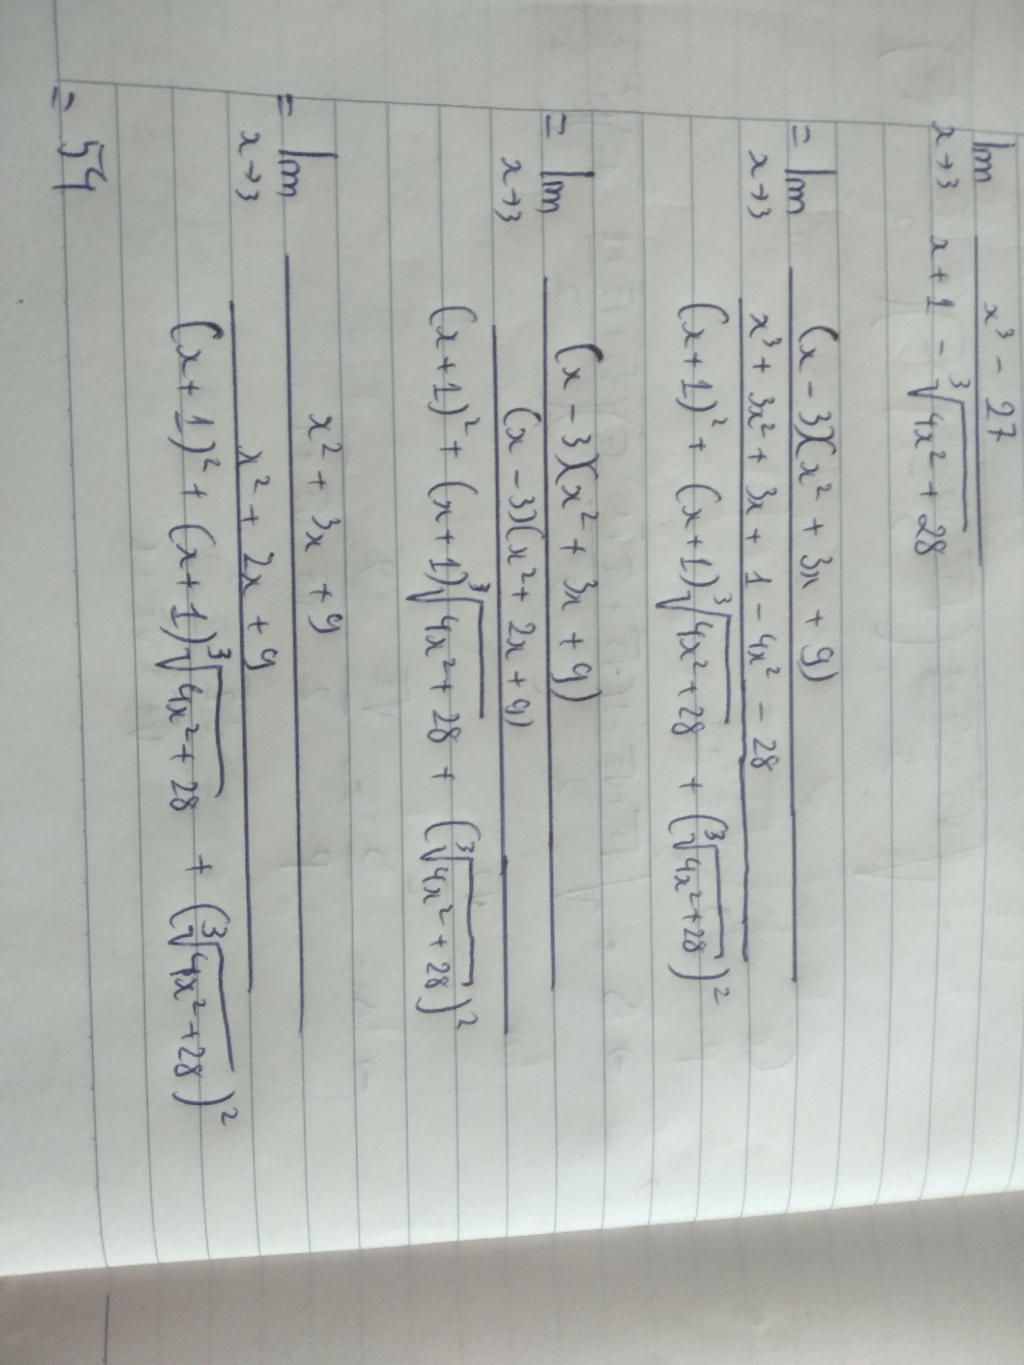 lim x→3 (x³ - 27)/(x + 1 - ∛(4x² + 28))
= lim x→3 ((x - 3)(x² + 3x + 9))/((x³ + 3x² + 3x + 1 - 4x² - 28)/((x + 1)² + (x + 1)∛(4x² + 28) + (∛(4x² + 28))²))
= lim x→3 ((x - 3)(x² + 3x + 9))/(((x - 3)(x² + 2x + 9))/((x + 1)² + (x + 1)∛(4x² + 28) + (∛(4x² + 28))²))
= lim x→3 (x² + 3x + 9)/((x² + 2x + 9)/((x + 1)² + (x + 1)∛(4x² + 28) + (∛(4x² + 28))²))
= 54